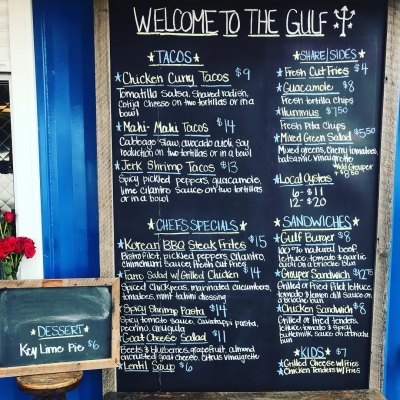 WELCOME TO THE GULF
TACOS
Chicken Curry Tacos $9
Tomatilla Salsa, Shaved radish,
Cotija Cheese on two tortillas or in a
bowl
Mahi-Mahi Tacos $14
Cabbage Slaw, avocado aioli, soy
reduction on two tortillas or in a
bowl
Jerk Shrimp Tacos $13
Spicy pickled peppers, guacamole,
lime cilantro sauce on two tortillas
or in a bowl
CHEF'S SPECIALS
Korean BBQ Steak Frites $15
Bistro filet, pickled peppers, cilantro,
chimichurri sauce, fresh cut fries
Farro Salad w/ Grilled Chicken $14
Spiced chickpeas, marinated cucumbers,
tomatoes, mint tahini dressing
Spicy Shrimp Pasta $14
Spicy tomato sauce, cavatappi pasta,
pecorino, arugula
Goat Cheese Salad $11
Beets & blueberries, grapefruit, almond
encrusted goat cheese, citrus vinaigrette
Lentil Soup $6
SHARE/SIDES
Fresh Cut Fries $4
Guacamole $8
Fresh tortilla chips
Hummus $7.50
Fresh Pita Chips
Mixed Green Salad $5.50
Mixed greens, cherry tomatoes,
balsamic vinaigrette
Add Grouper
+ $8.50
Local Oysters
6- $11
12- $20
SANDWICHES
Gulf Burger $8
100% natural beef,
lettuce, tomato & garlic
aioli on a brioche bun
Grouper Sandwich $12.75
Grilled or Fried filet, lettuce,
tomato & lemon dill sauce on
a brioche bun
Chicken Sandwich $8
Grilled or fried, tenders,
lettuce, tomato & spicy
buttermilk sauce on a brioche
bun
KIDS $7
Grilled Cheese w/ Fries
Chicken Tenders w/ Fries
DESSERT
Key Lime Pie $6